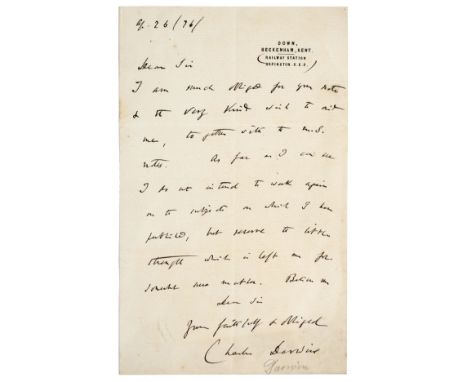 Ap. 26 / 76 /
DOWN,
BECKENHAM, KENT.
(RAILWAY STATION
ORPINGTON. S.E.R.)
Dear Sir
I am much obliged for your note
& the very kind wish to aid
me, together with the M.S.
notes. As far as I can see
I do not intend to work again
on the subjects on which I have
published, but reserve the little
strength which is left me for
somewhat new matter. Believe me
dear Sir
Yours faithfully & obliged
Charles Darwin
Darwin